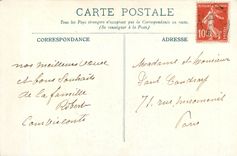 CARTE POSTALE
Tous les Pays étrangers n'acceptent pas la Correspondance au recto.
(Se renseigner à la Poste.)
CORRESPONDANCE
ADRESSE
nos meilleurs vœux
et bons souhaits
de la famille
Robert
Madame et Monsieur
Paul
71, rue
Paris
10